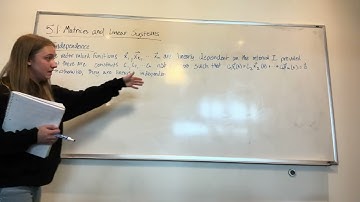 5.1 Matrices and Linear Systems
Independence
vector valued functions x⃗₁, x⃗₂, ... x⃗ₙ are linearly dependent on the interval I provided
there are constants c₁, c₂, ... cₙ not such that c₁x⃗₁(t) + c₂x⃗₂(t) + ... + cₙx⃗ₙ(t) = 0⃗
otherwise, they are linearly independent